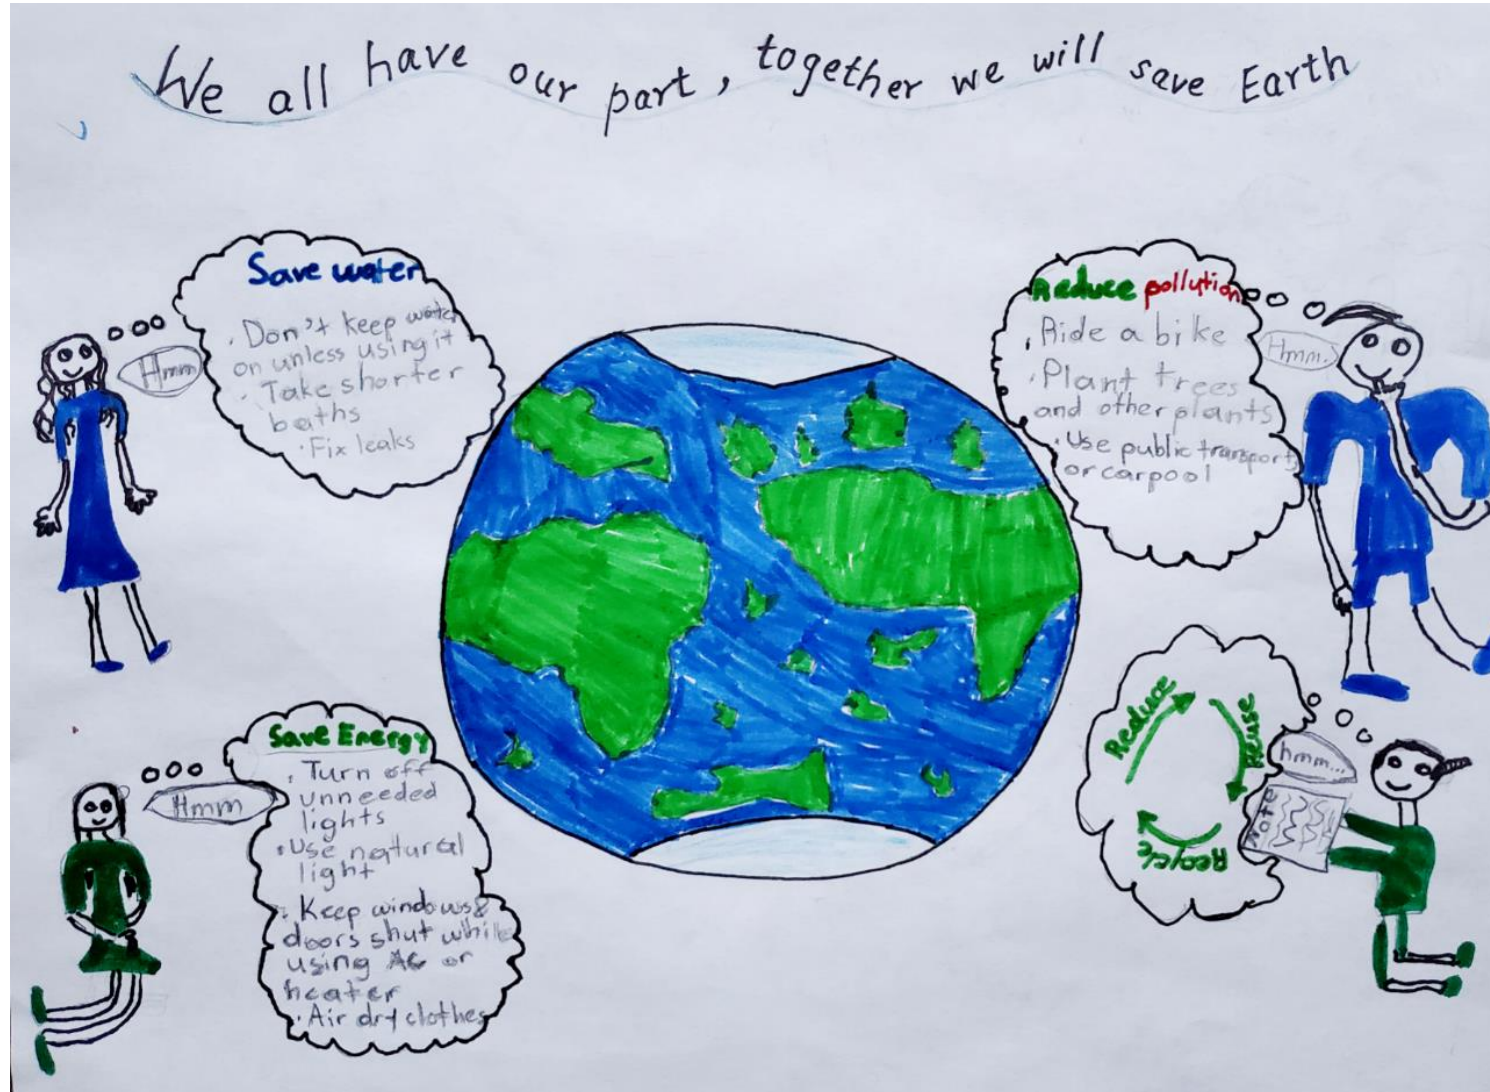 We all have our part, together we will save Earth
Save water
· Don't keep water
on unless using it
· Take shorter
baths
· Fix leaks
Hmm
Reduce pollution
· Ride a bike
· Plant trees
and other plants
· Use public transport
or carpool
Hmm.
Save Energy
· Turn off
unneeded
lights
· Use natural
light
· Keep windows &
doors shut while
using AC or
heater
· Air dry clothes
Hmm
Reduce
Reuse
Recycle
hmm...
Note